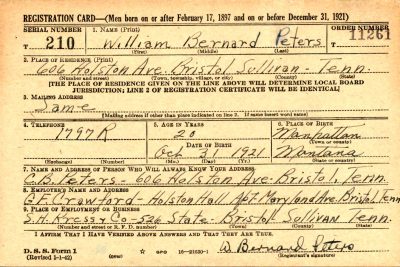 REGISTRATION CARD—(Men born on or after February 17, 1897 and on or before December 31, 1921)
SERIAL NUMBER 1. NAME (Print) ORDER NUMBER
T 210 William Bernard Peters 11261
(First) (Middle) (Last)
2. PLACE OF RESIDENCE (Print)
606 Holston Ave. Bristol Sullivan - Tenn.
(Number and street) (Town, township, village, or city) (County) (State)
[THE PLACE OF RESIDENCE GIVEN ON THE LINE ABOVE WILL DETERMINE LOCAL BOARD
JURISDICTION; LINE 2 OF REGISTRATION CERTIFICATE WILL BE IDENTICAL]
3. MAILING ADDRESS
Same
[Mailing address if other than place indicated on line 2. If same insert word same]
4. TELEPHONE 5. AGE IN YEARS 6. PLACE OF BIRTH
1797R 20 Manhattan
DATE OF BIRTH (Town or county)
Oct 31 1921 Montana
(Exchange) (Number) (Mo.) (Day) (Yr.) (State or country)
7. NAME AND ADDRESS OF PERSON WHO WILL ALWAYS KNOW YOUR ADDRESS
C.B. Peters - 606 Holston Ave. Bristol, Tenn
8. EMPLOYER'S NAME AND ADDRESS
G.F. Crawford - Holston Hall Apt. Maryland Ave. Bristol Tenn
9. PLACE OF EMPLOYMENT OR BUSINESS
S.H. Kress & Co - 526 State - Bristol Sullivan Tenn.
(Number and street or R. F. D. number) (Town) (County) (State)
I AFFIRM THAT I HAVE VERIFIED ABOVE ANSWERS AND THAT THEY ARE TRUE.
D. S. S. Form 1
(Revised 1-1-42) (over) GPO 16-21630-1
W. Bernard Peters
(Registrant's signature)